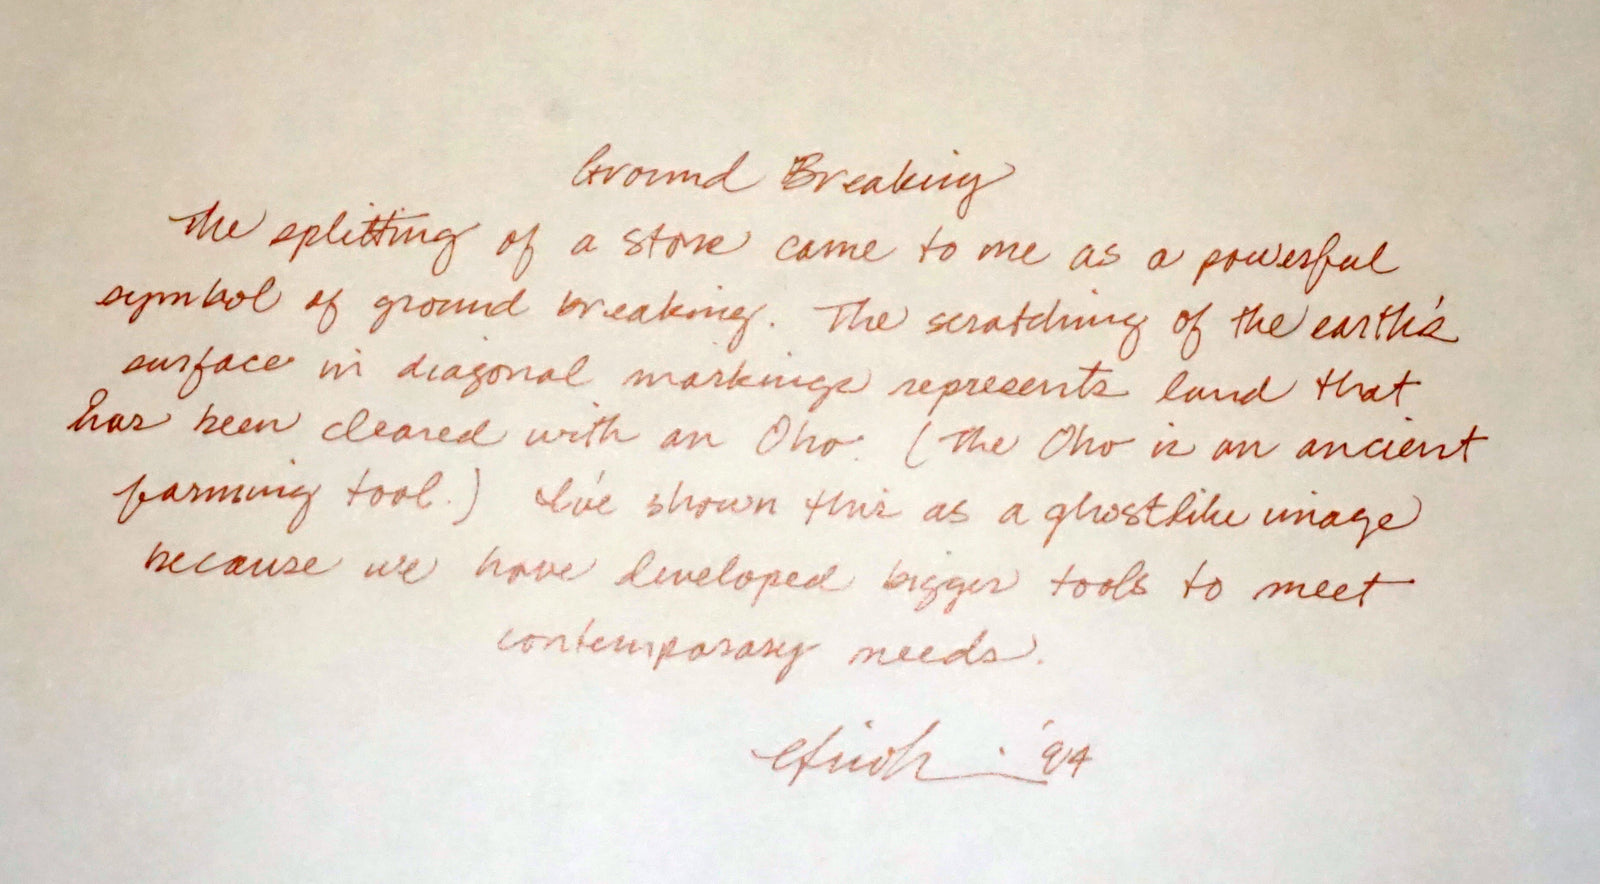 Ground Breaking
The splitting of a stone came to me as a powerful
symbol of ground breaking. The scratching of the earth's
surface in diagonal markings represents land that
has been cleared with an Oho. (The Oho is an ancient
farming tool.) I've shown this as a ghostlike image
because we have developed bigger tools to meet
contemporary needs.
'94